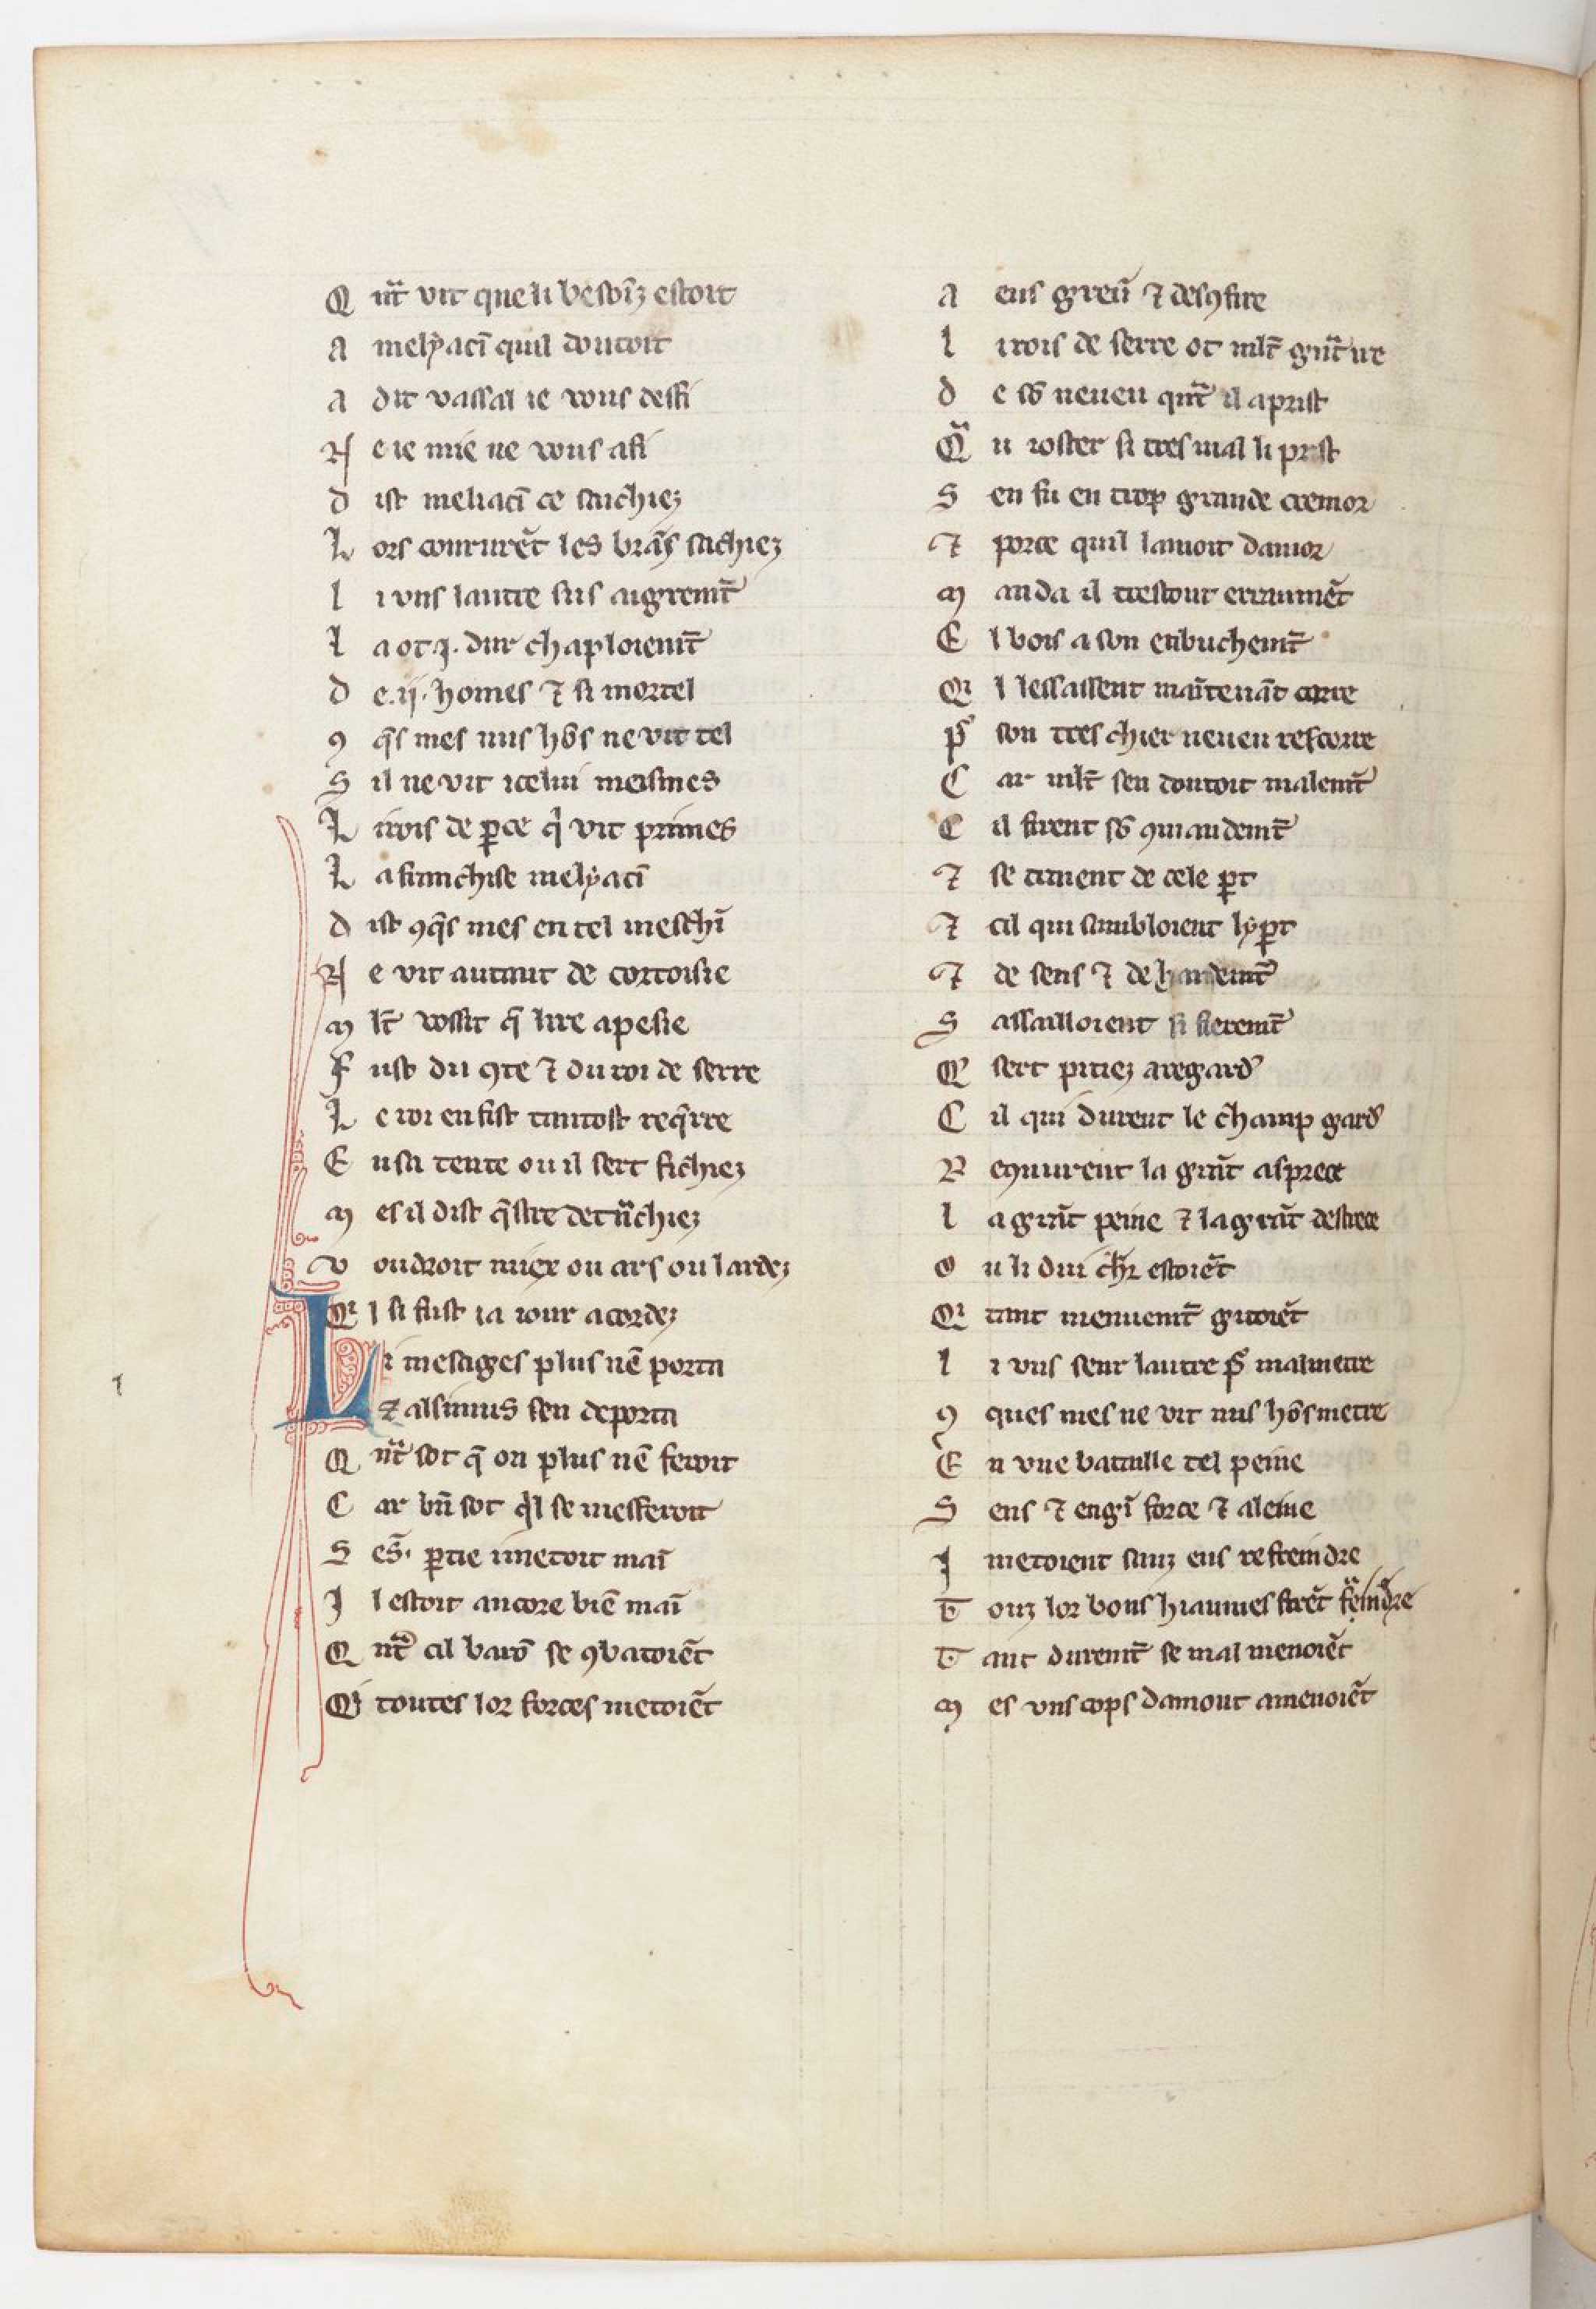 Q nͣt vit que li besoĩz estoit
A melẏacĩ quil doutoit
A dit vassal ie vous desfi
N e ie mie ne vous afi
D ist meliacĩ ce sachiez
L ors coururẽt les brãs sachiez
L i vns lautre sus aigremt̃
L a ot .j. dur chaploiemt̃
D e .ij. homes ⁊ si mortel
ꝯ q̃s mes nus hõs ne vit tel
S il ne vit icelui meismes
L i rois de ꝑce qͥ vit primes
L a franchise melẏacĩ
D ist ꝯq̃s mes en tel meschĩ
N e vit autant de cortoisie
M lt̃ vossit q̃ lire apesie
F ust du ꝯte ⁊ du roi de serre
L e roi en fist tantost req̃rre
E n sa tente ou il sert fichiez
M es il dist q̃stre detͣnchiez
V oudroit miex ou ars ou lardez
Qͥ l si fust ia iour acordez
L i mesages plus nẽ porta
⁊ alsimus sen deporta
Q nͣt sot q̃ on plus nẽ feroit
C ar bñ sot qͥl se mesferoit
S e .s. ꝑtie i metoit maĩ
I l estoit ancore biẽ maĩ
Q nͣt cil barõ se ꝯbatoiẽt
Qͥ toutes lor forces metoiẽt
A eus greũ ⁊ desꝯfire
L i rois de serre ot mlt̃ grͣt ire
D e sõ neueu qnͣt il aprist
Qͣ u ioster si tres mal li prist
S en fu en trop grande cremor
⁊ porce quil lamoit damor
M anda il trestout erraumẽt
E l bois a son enbuchemt̃
Qͥ l lessassent maĩtenãt corre
P̃ son tres chier neueu rescorre
C ar mlt̃ sen doutoit malemt̃
C il firent sõ ꝯmandemt̃
⁊ se tirrent de cele ꝑt
⁊ cil qui sambloient lẏꝑt
⁊ de sens ⁊ de hardemt̃
S assailloient si fieremt̃
Qͥ sert pitiez aregard᾽
C il qui durent le champ gard᾽
R eqnurent la grãt asprece
L a grãt peine ⁊ la grãt destrece
O u li dui chr̃ estoiẽt
Qͥ tant menuemt̃ gitoiẽt
L i vns seur lautre p̃ malmetre
ꝯ ques mes ne vit nus hõs metre
E n vne bataille tel peine
S ens ⁊ engĩ force ⁊ aleine
I metoient sanz eus refreindre
T ouz lor bons hiaumes firẽt fͣeindre
T ant duremt̃ se mal menoiẽt
M es vns cops damont amenoiẽt